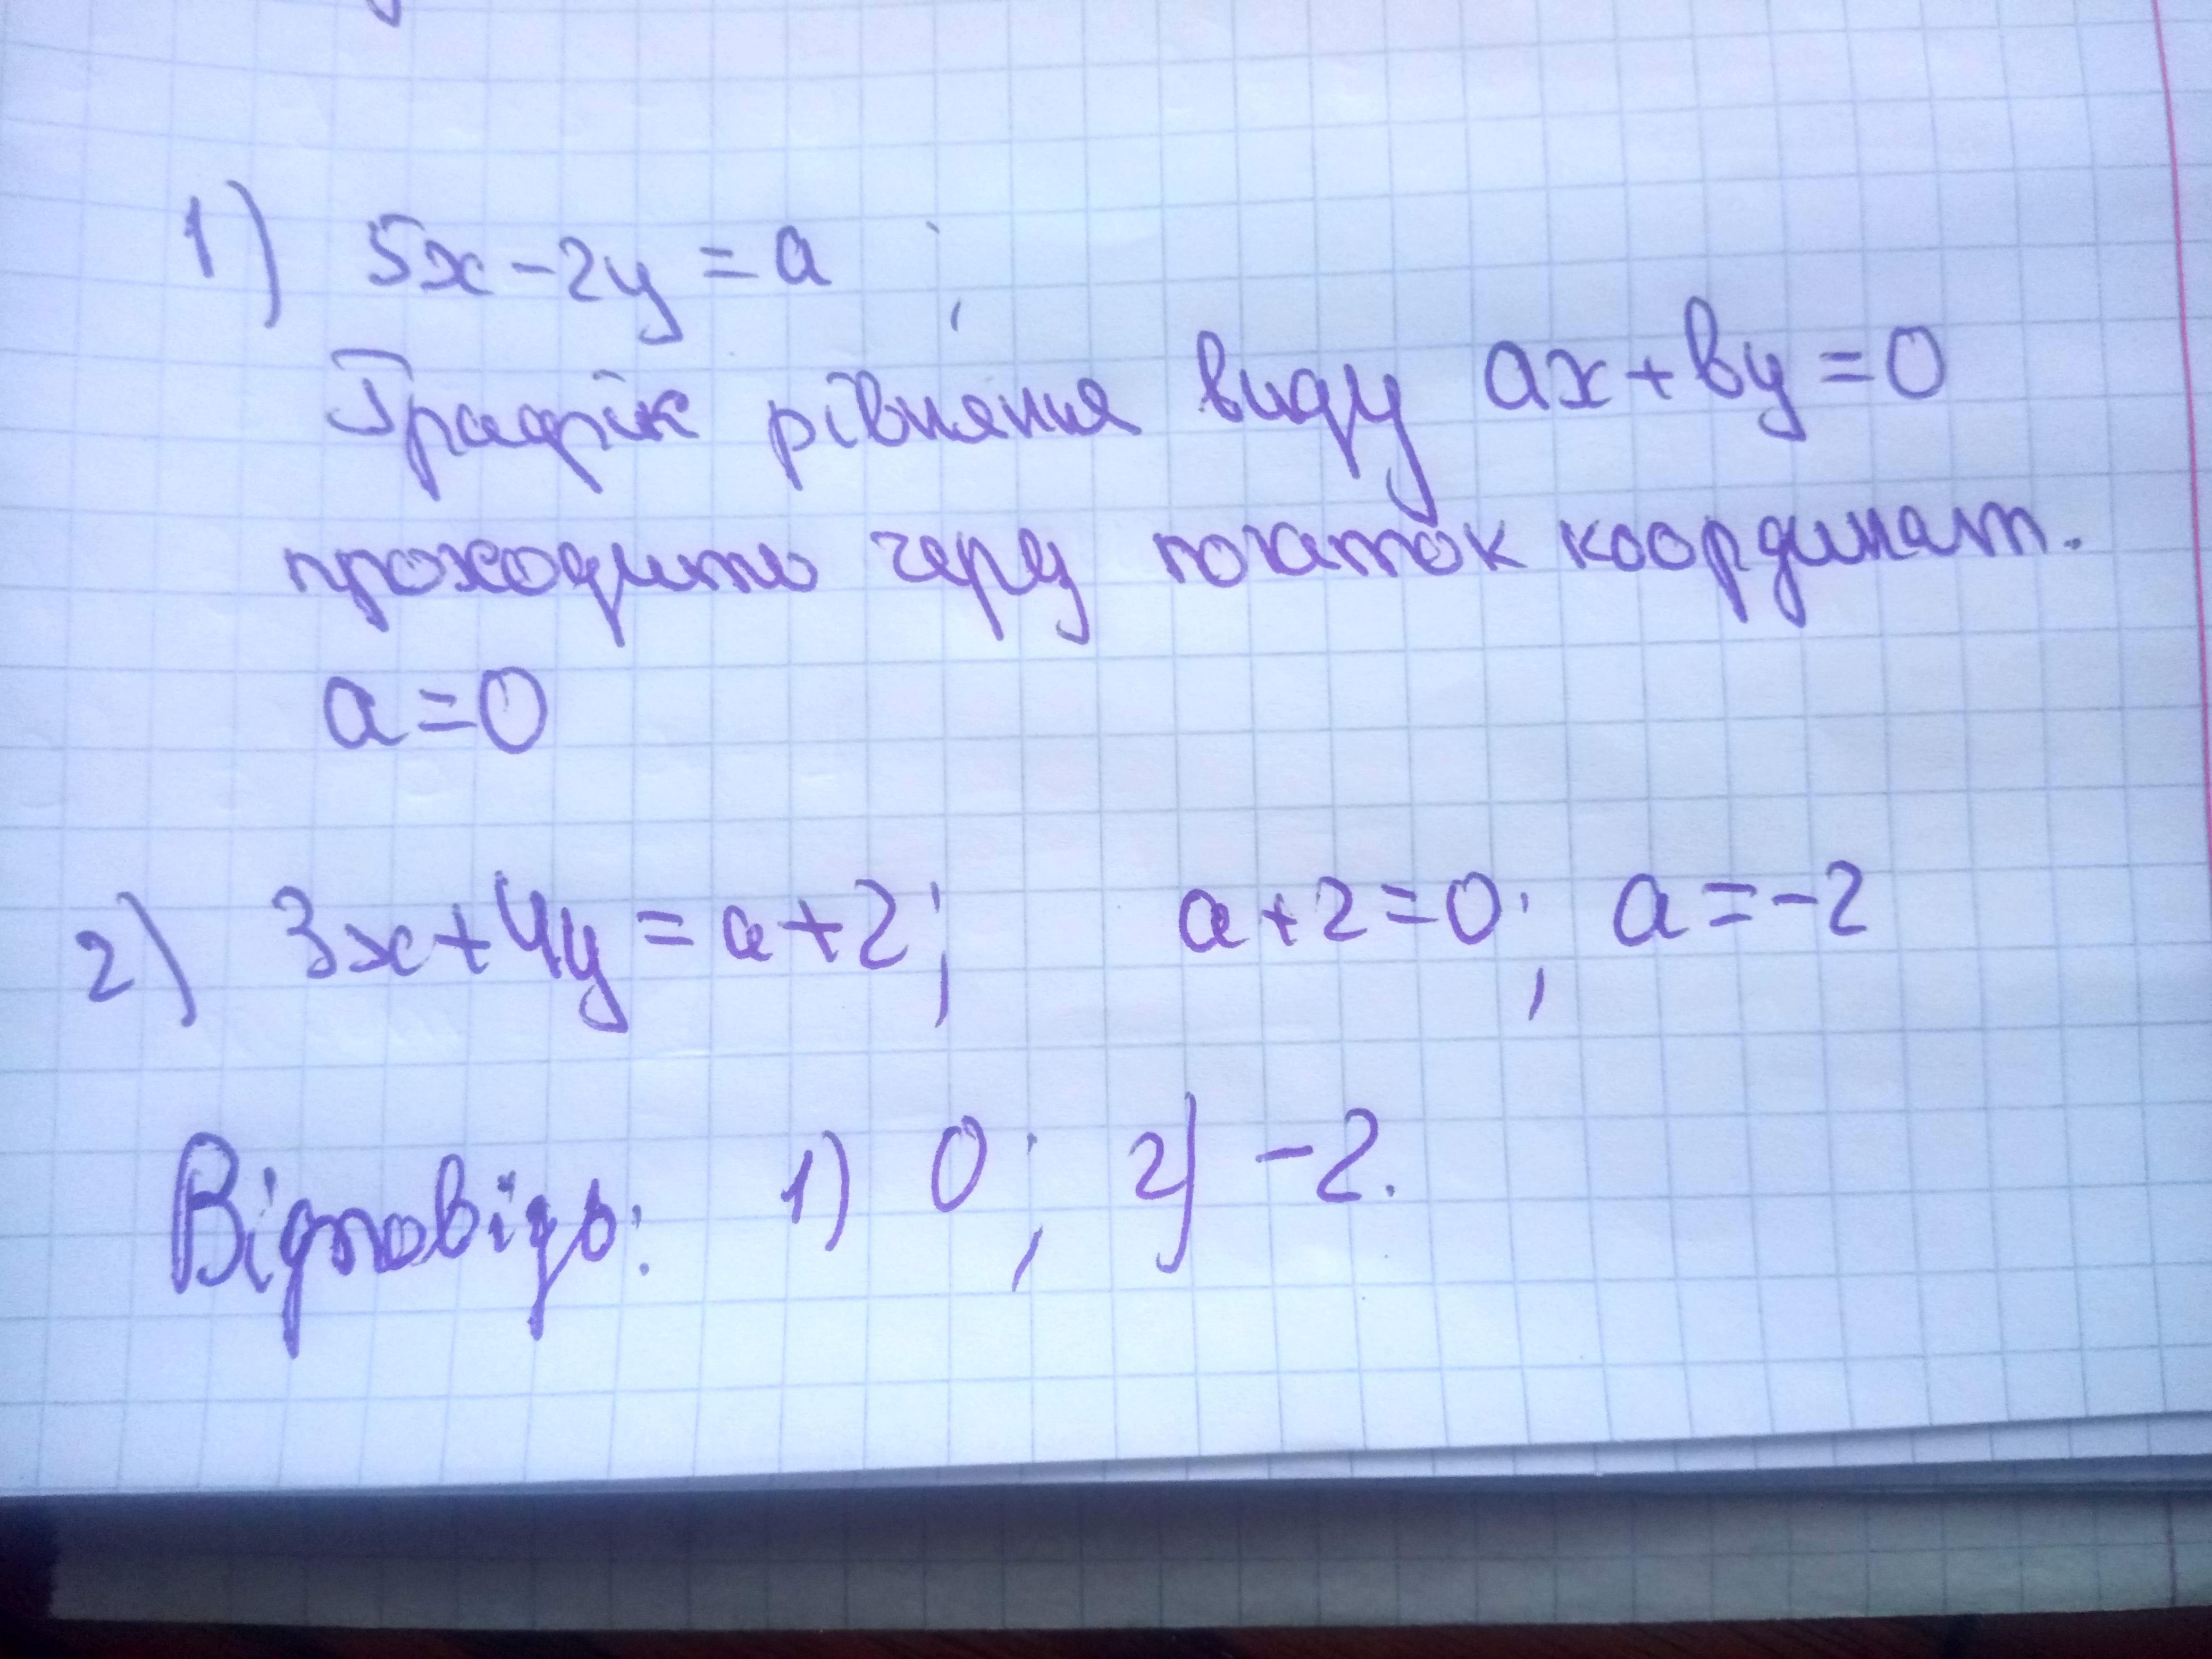 1) 5x - 2y = a ;
Графік рівняння виду ax + by = 0
проходить через початок координат.
a = 0
2) 3x + 4y = a + 2; a + 2 = 0; a = -2
Відповідь: 1) 0; 2) -2.